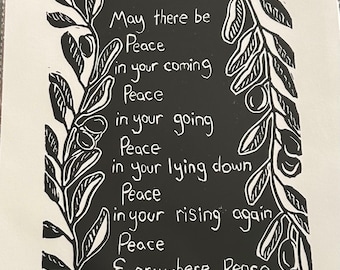 May there be
Peace
in your coming
Peace
in your going
Peace
in your lying down
Peace
in your rising again
Peace
Everywhere Peace